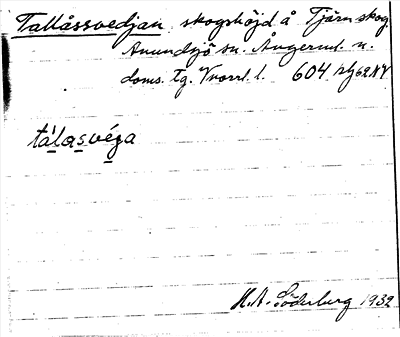 Tallåssvedjan skogshöjd å Tjärnskog.
Anundsjö sn. Ångerml. n.
doms. tg. Vnorrl. l. 604
tálasvéga
H.A. Söderburg 1932